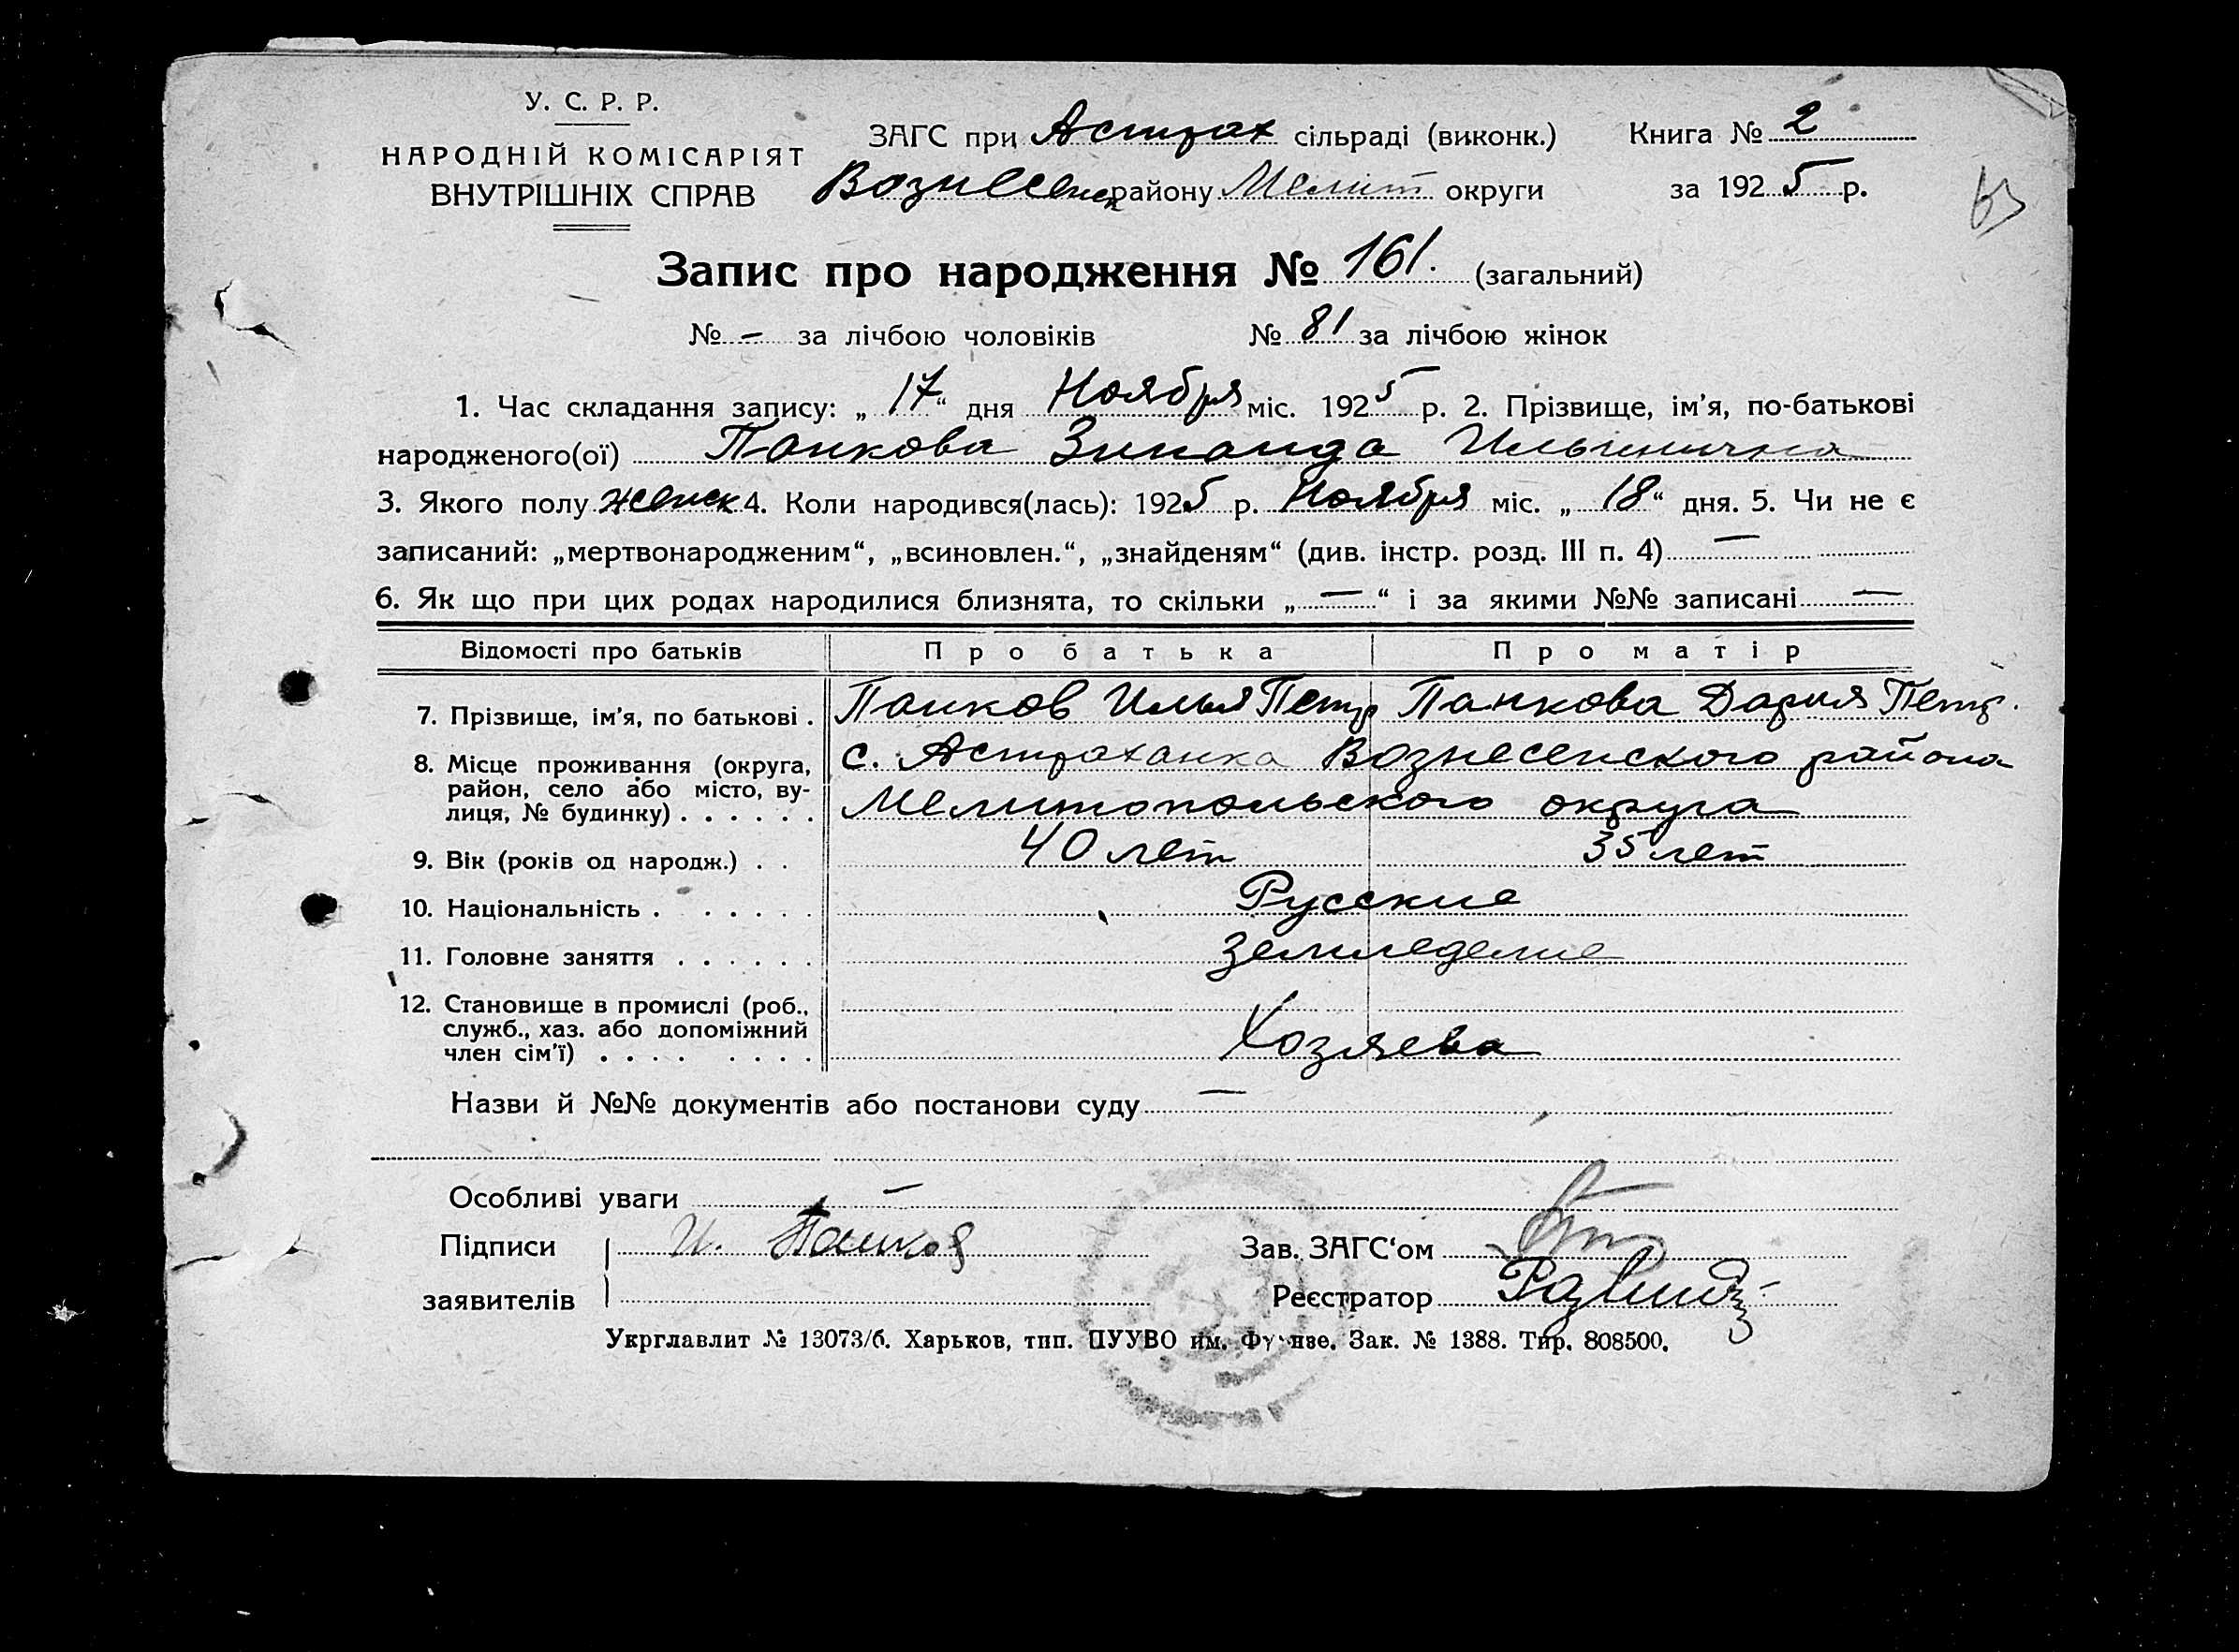 У. С. Р. Р.
НАРОДНІЙ КОМІСАРІЯТ
ВНУТРІШНІХ СПРАВ
ЗАГС при Астрах сільраді (виконк.) Книга № 2
Вознесенск району Мелит округи за 1925 р.
Запис про народження № 161. (загальний)
№ – за лічбою чоловіків № 81 за лічбою жінок
1. Час складання запису: „17“ дня Ноября міс. 1925 р. 2. Прізвище, ім’я, по-батькові
народженого(ої) Панкова Зинаида Ильинична
3. Якого полу женск 4. Коли народився(лась): 1925 р. Ноября міс. „18“ дня. 5. Чи не є
записаний: „мертвонародженим“, „всиновлен.“, „знайденям“ (див. інстр. розд. III п. 4) —
6. Як що при цих родах народилися близнята, то скільки „—“ і за якими №№ записані —
Відомості про батьків Про батька Про матір
7. Прізвище, ім’я, по батькові . Панков Илья Петр Панкова Дария Петр.
8. Місце проживання (округа, с. Астраханка Вознесенского района
район, село або місто, ву-
лиця, № будинку) . . . . . . Мелитопольского округа
9. Вік (років од народж.) . . 40 лет 35 лет
10. Національність . . . . . . Русские
11. Головне заняття . . . . . . Земледелие
12. Становище в промислі (роб.,
служб., хаз. або допоміжний
член сім’ї) . . . . . . . . Хозяева
Назви й №№ документів або постанови суду —
Особливі уваги —
Підписи И. Панков Зав. ЗАГС‘ом
заявителів Реєстратор
Укрглавлит № 13073/б. Харьков, тип. ПУУВО им. Фрунзе. Зак. № 1388. Тир. 808500.